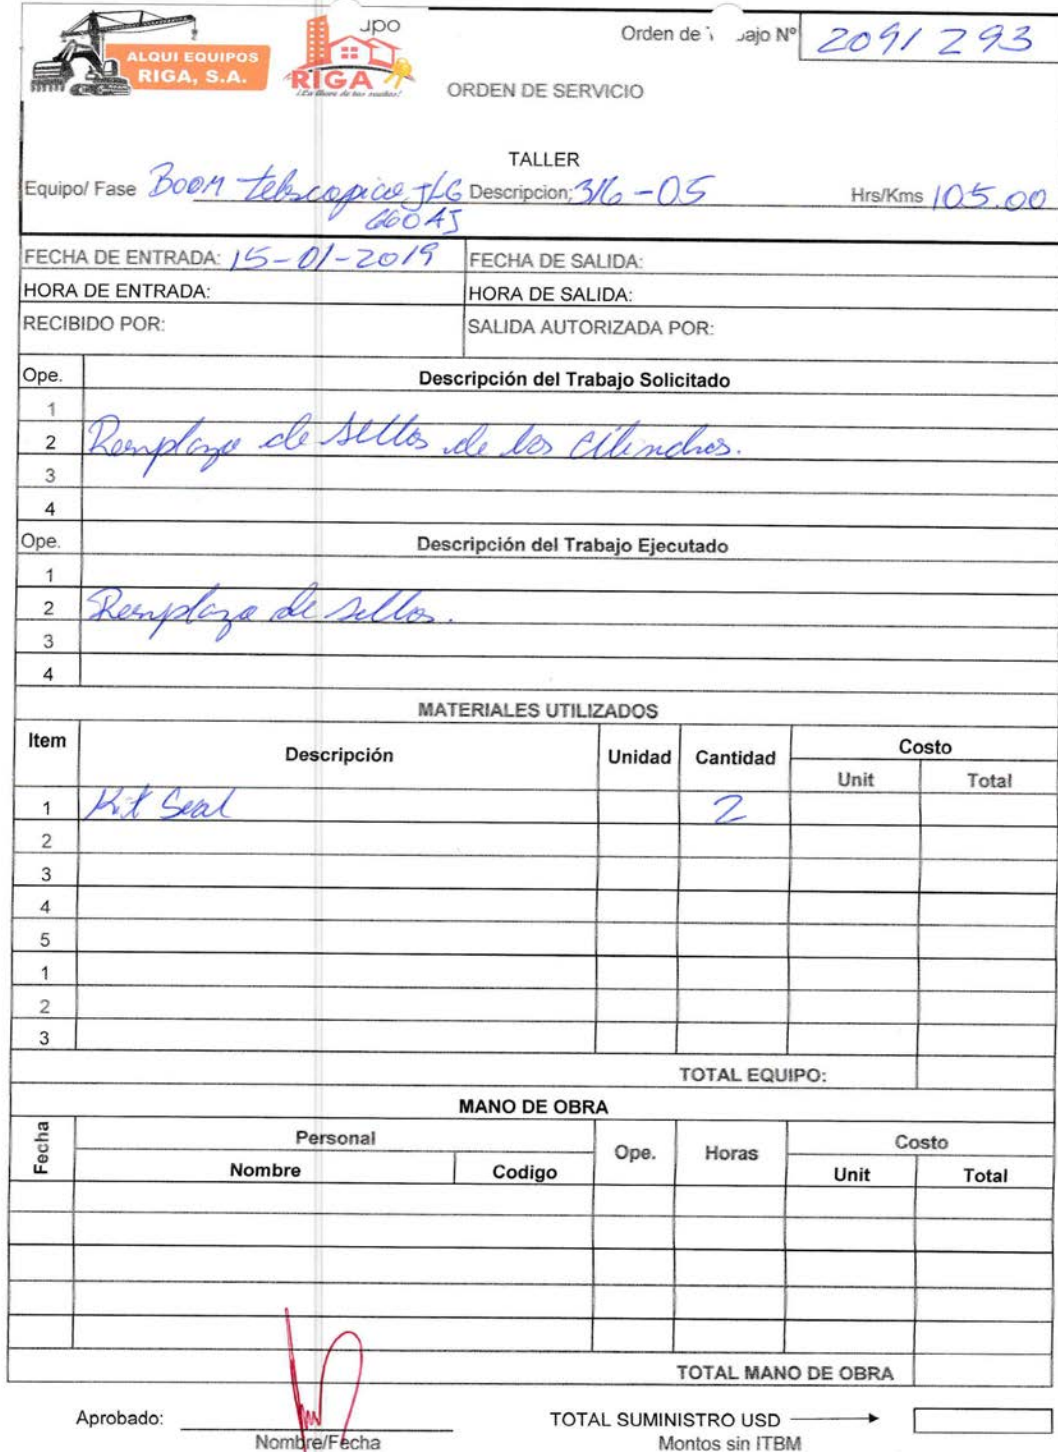 ALQUI EQUIPOS
RIGA, S.A.
upo
RIGA
¡La llave de tus sueños!
Orden de ajo Nº 2091293
ORDEN DE SERVICIO
TALLER
Equipo/ Fase Boom telescopico JLG 660AJ Descripcion; 316-05 Hrs/Kms 105.00
FECHA DE ENTRADA: 15-01-2019 FECHA DE SALIDA:
HORA DE ENTRADA: HORA DE SALIDA:
RECIBIDO POR: SALIDA AUTORIZADA POR:
Ope. Descripción del Trabajo Solicitado
1
2 Remplazo de sellos de los cilindros.
3
4
Ope. Descripción del Trabajo Ejecutado
1
2 Remplazo de sellos.
3
4
MATERIALES UTILIZADOS
Item Descripción Unidad Cantidad Costo
Unit Total
1 Kit Seal 2
2
3
4
5
1
2
3
TOTAL EQUIPO:
MANO DE OBRA
Fecha Personal Ope. Horas Costo
Nombre Codigo Unit Total
TOTAL MANO DE OBRA
Aprobado: TOTAL SUMINISTRO USD
Nombre/Fecha Montos sin ITBM